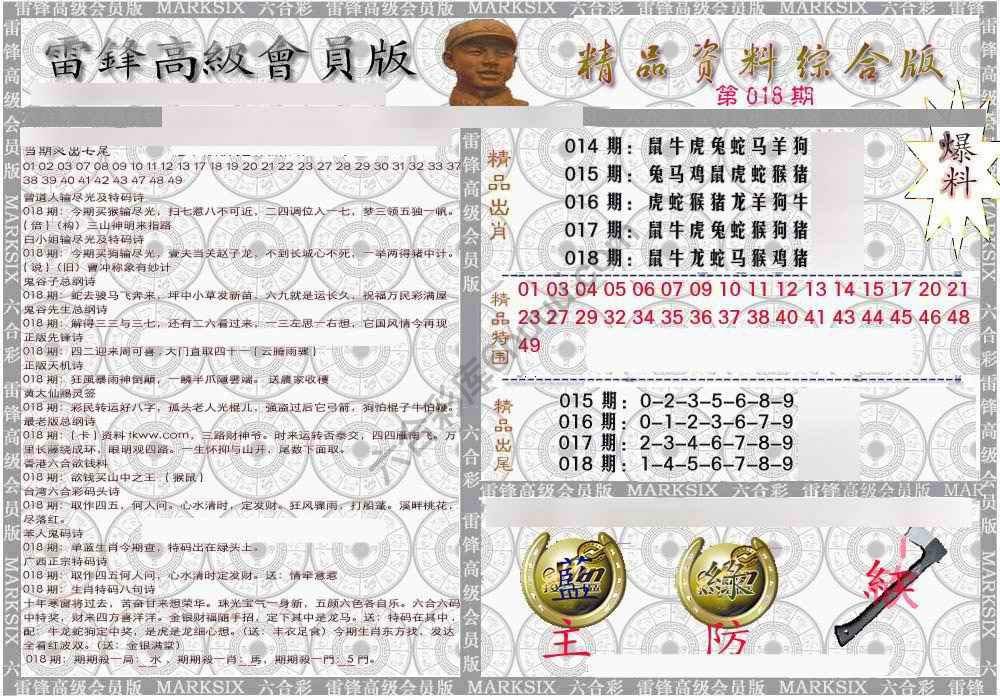 雷锋高级会员版 MARKSIX 六合彩 雷锋高级会员版 MARKSIX 六合彩 雷锋高级会员版
雷鋒高級會員版
精品资料综合版
第 018 期
爆料
当期灵出七尾
01 02 03 07 08 09 10 11 12 13 17 18 19 20 21 22 23 27 28 29 30 31 32 33 37
38 39 40 41 42 43 47 48 49
曾道人输尽光及特码诗
018 期：今期买猴输尽光，扫七惹八不可近，二四调位入一七，梦三领五独一帆。
{ 倍 }（构）三山神明来指路
白小姐输尽光及特码诗
018 期：今期买狗输尽光，壹夫当关赵子龙，不到长城心不死，一举两得猪中计。
{ 说 }（旧）曹冲称象有妙计
鬼谷子总纲诗
018 期：蛇去骏马飞奔来，坪中小草发新苗，六九就是运长久，祝福万民彩满屋
鬼谷先生总纲诗
018 期：解得三三与三七，还有二六看过来，一三左思一右想，它国风情今再现
正版先锋诗
018 期：四二迎来周可喜，大门直取四十一 { 云腾雨骤 }
正版天机诗
018 期：狂風暴雨神倒顛，一鱗半爪隱雲端。 送農家收穫
黄大仙赐灵签
018 期：彩民转运好八字，孤头老人光棍儿，强盗过后它弓箭，狗怕棍子牛怕鞭。
最老版总纲诗
018 期：{ 卡 } 资料 tkww.com，三路财神爷。时来运转否泰交，四四雁南飞。万
里长藤绕成环，眼明观四路。一生怀抑与山开，尾数下面取。
香港六合欲钱料
018 期：欲钱买山中之王 { 猴鼠 }
台湾六合彩码头诗
018 期：取作四五，何人问。心水清时，定发财。狂风骤雨，打船蓬。溪畔桃花，
尽落红。
苯人鬼码诗
018 期：单蓝生肖今期查，特码出在绿头上。
广西正宗特码诗
018 期：取作四五何人问，心水清时定发财。送：情牵意惹
018 期：生肖特码八句诗
十年寒窗将过去，苦奋甘来想荣华。珠光宝气一身新，五颜六色各自乐。六合六码
中特奖，财来四方喜洋洋。金银财福随手招，定下其中是龙马。送：特码在其中，
配：牛龙蛇狗定中奖，是虎是龙细心想。（送：丰衣足食）今期生肖东方找，发达
全看红波双。（送：金银满堂）
018 期：期期殺一局：水 ，期期殺一肖：馬，期期殺一門：5 門。
精品出肖
014 期：鼠牛虎兔蛇马羊狗
015 期：兔马鸡鼠虎蛇猴猪
016 期：虎蛇猴猪龙羊狗牛
017 期：鼠牛虎兔蛇猴狗猪
018 期：鼠牛龙蛇马猴鸡猪
精品特围
01 03 04 05 06 07 09 10 11 12 13 14 15 17 20 21
23 27 29 32 34 35 36 37 38 40 41 43 44 45 46 48
49
精品出尾
015 期：0-2-3-5-6-8-9
016 期：0-1-2-3-6-7-9
017 期：2-3-4-6-7-8-9
018 期：1-4-5-6-7-8-9
雷锋高级会员版 MARKSIX 六合彩 雷锋高级会员版 MARK
藍
主
綠
防
紅
雷锋高级会员版 MARKSIX 六合彩 雷锋高级会员版 MARKSIX 六合彩 雷锋高级会员版